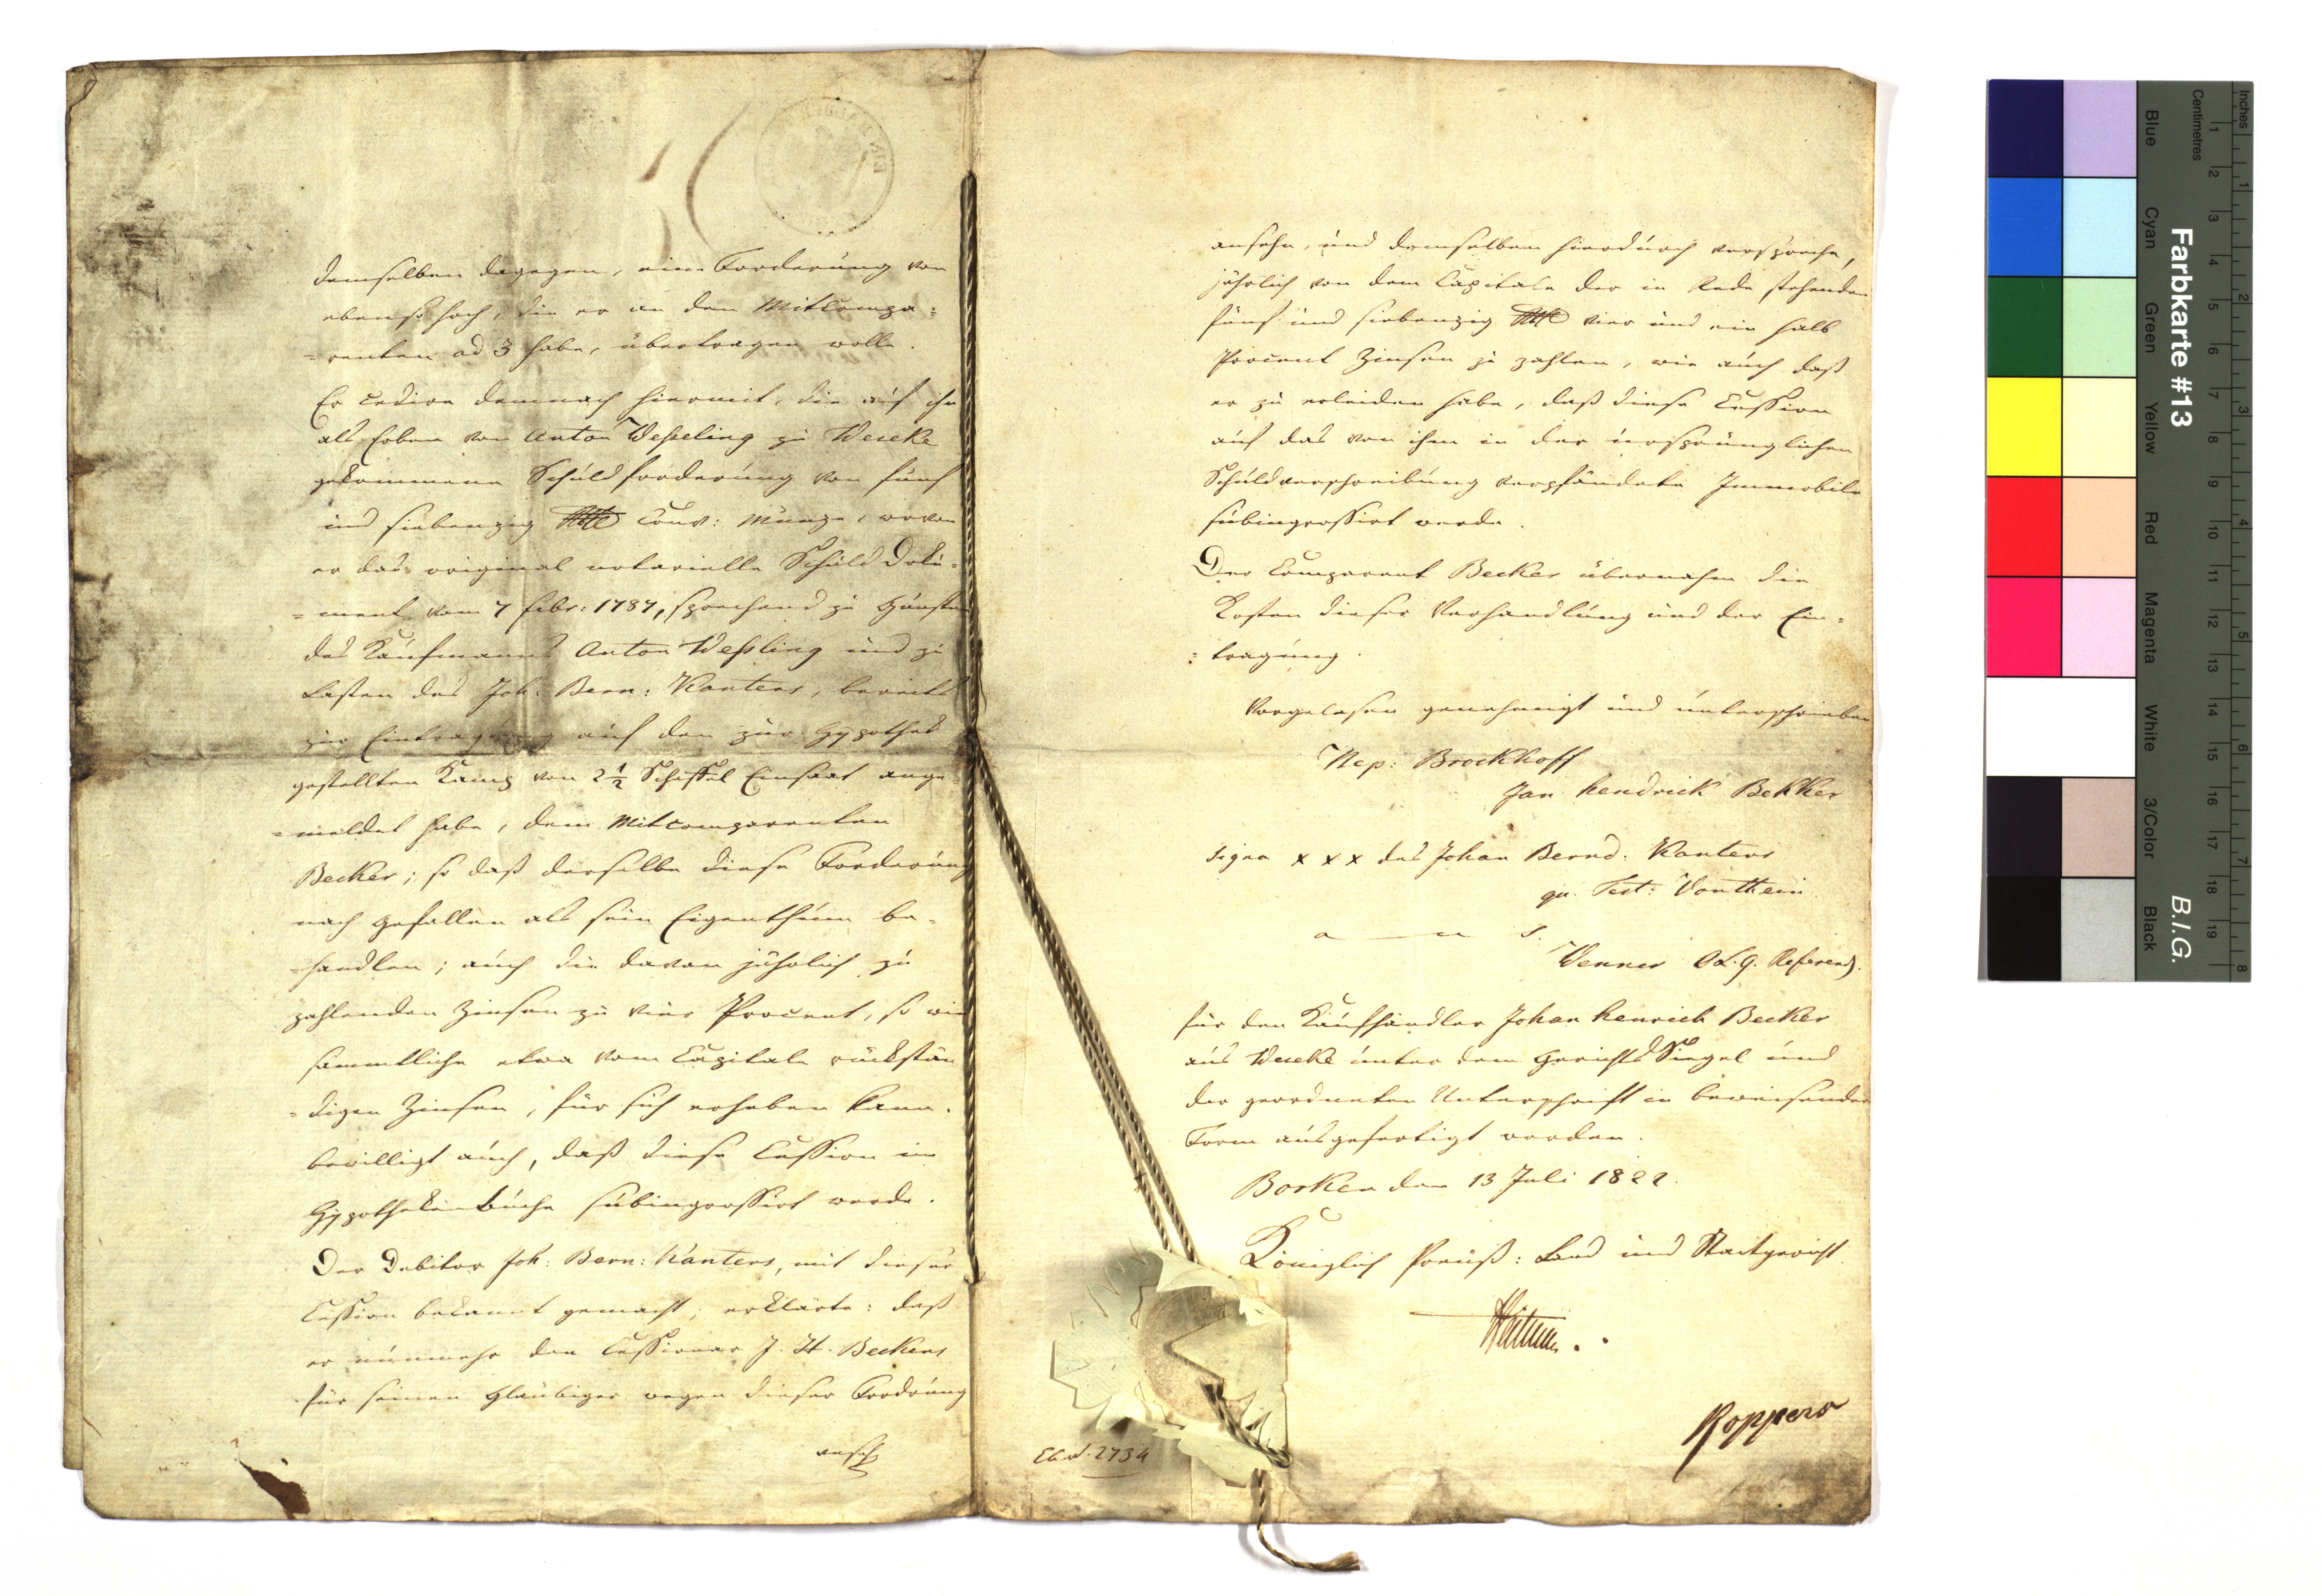 demselben dagegen, eine Forderung von
ebenso hoch, die er an den Mitcompa=
=renten ad 3 habe, übertragen wolle.
Er cedire demnach hiermit, die auf ihn
als Erben von Anton Wesseling zu Weseke
gekommene Schuldforderung von fünf
und siebenzig Rthlr Conv: Münze, wovon
er das original notarielle Schuld Doku=
=ment vom 7 febr: 1787, sprechend zu Gunsten
des Kaufmanns Anton Wessling und zu
Lasten des Joh: Bern: Kanters, bereits
zur Eintragung auf den zur Hypothek
gestellten Kamp von 2 1/2 Scheffel Einsaat ange=
=meldet habe, dem Mitcomparenten
Becker; so daß derselbe diese Forderung
nach Gefallen als sein Eigenthum be=
=handlen; auch die davon jährlich zu
zahlenden Zinsen zu vier Procent, so wie
sämmtliche etwa vom Capitale rückstän
=digen Zinsen, für sich erheben kann.
bewilligt auch, daß diese Cession im
Hypothekenbuche subingrossirt werde.
Der Debitor Joh: Bern: Kanters, mit dieser
Cession bekannt gemacht; erklärte: daß
er nunmehr den Cessionar J. H. Beckers
für seinen Gläubiger wegen dieser Fordrung
anseh
ansehe, und demselben hierdurch verspreche,
jährlich von dem Capitale der in Rede stehenden
fünf und siebenzig Rthlr vier und ein halb
Procent Zinsen zu zahlen, wie auch daß
er zu erleiden habe, daß diese Cession
auf das von ihm in der ursprünglichen
Schuldverschreibung verpfändete Immobile
subingrossirt werde.
Der Comparent Becker übernahm die
Kosten dieser Verhandlung und der Ein=
=tragung.
Vorgelesen genehmigt und unterschrieben
Nep: Brockhoff
Jan hendrick Bekker
signa x x x des Johan Bernd: Kanters
qu. Test: Vonthein
a u s.
Wenner O.L.G. Referend.
für den Kaufhändler Johan henrich Becker
aus Weseke unter dem Gerichts Siegel und
der geordneten Unterschrift in beweisender
Form ausgefertigt worden.
Borken den 13 Juli 1822.
Königlich Preuß: Land und Stadtgericht
Roppers
2734
Farbkarte #13
B.I.G.
Centimetres
Inches
Blue
Cyan
Green
Yellow
Red
Magenta
White
3/Color
Black
1
2
3
4
5
6
7
8
9
10
11
12
13
14
15
16
17
18
19
1
2
3
4
5
6
7
8